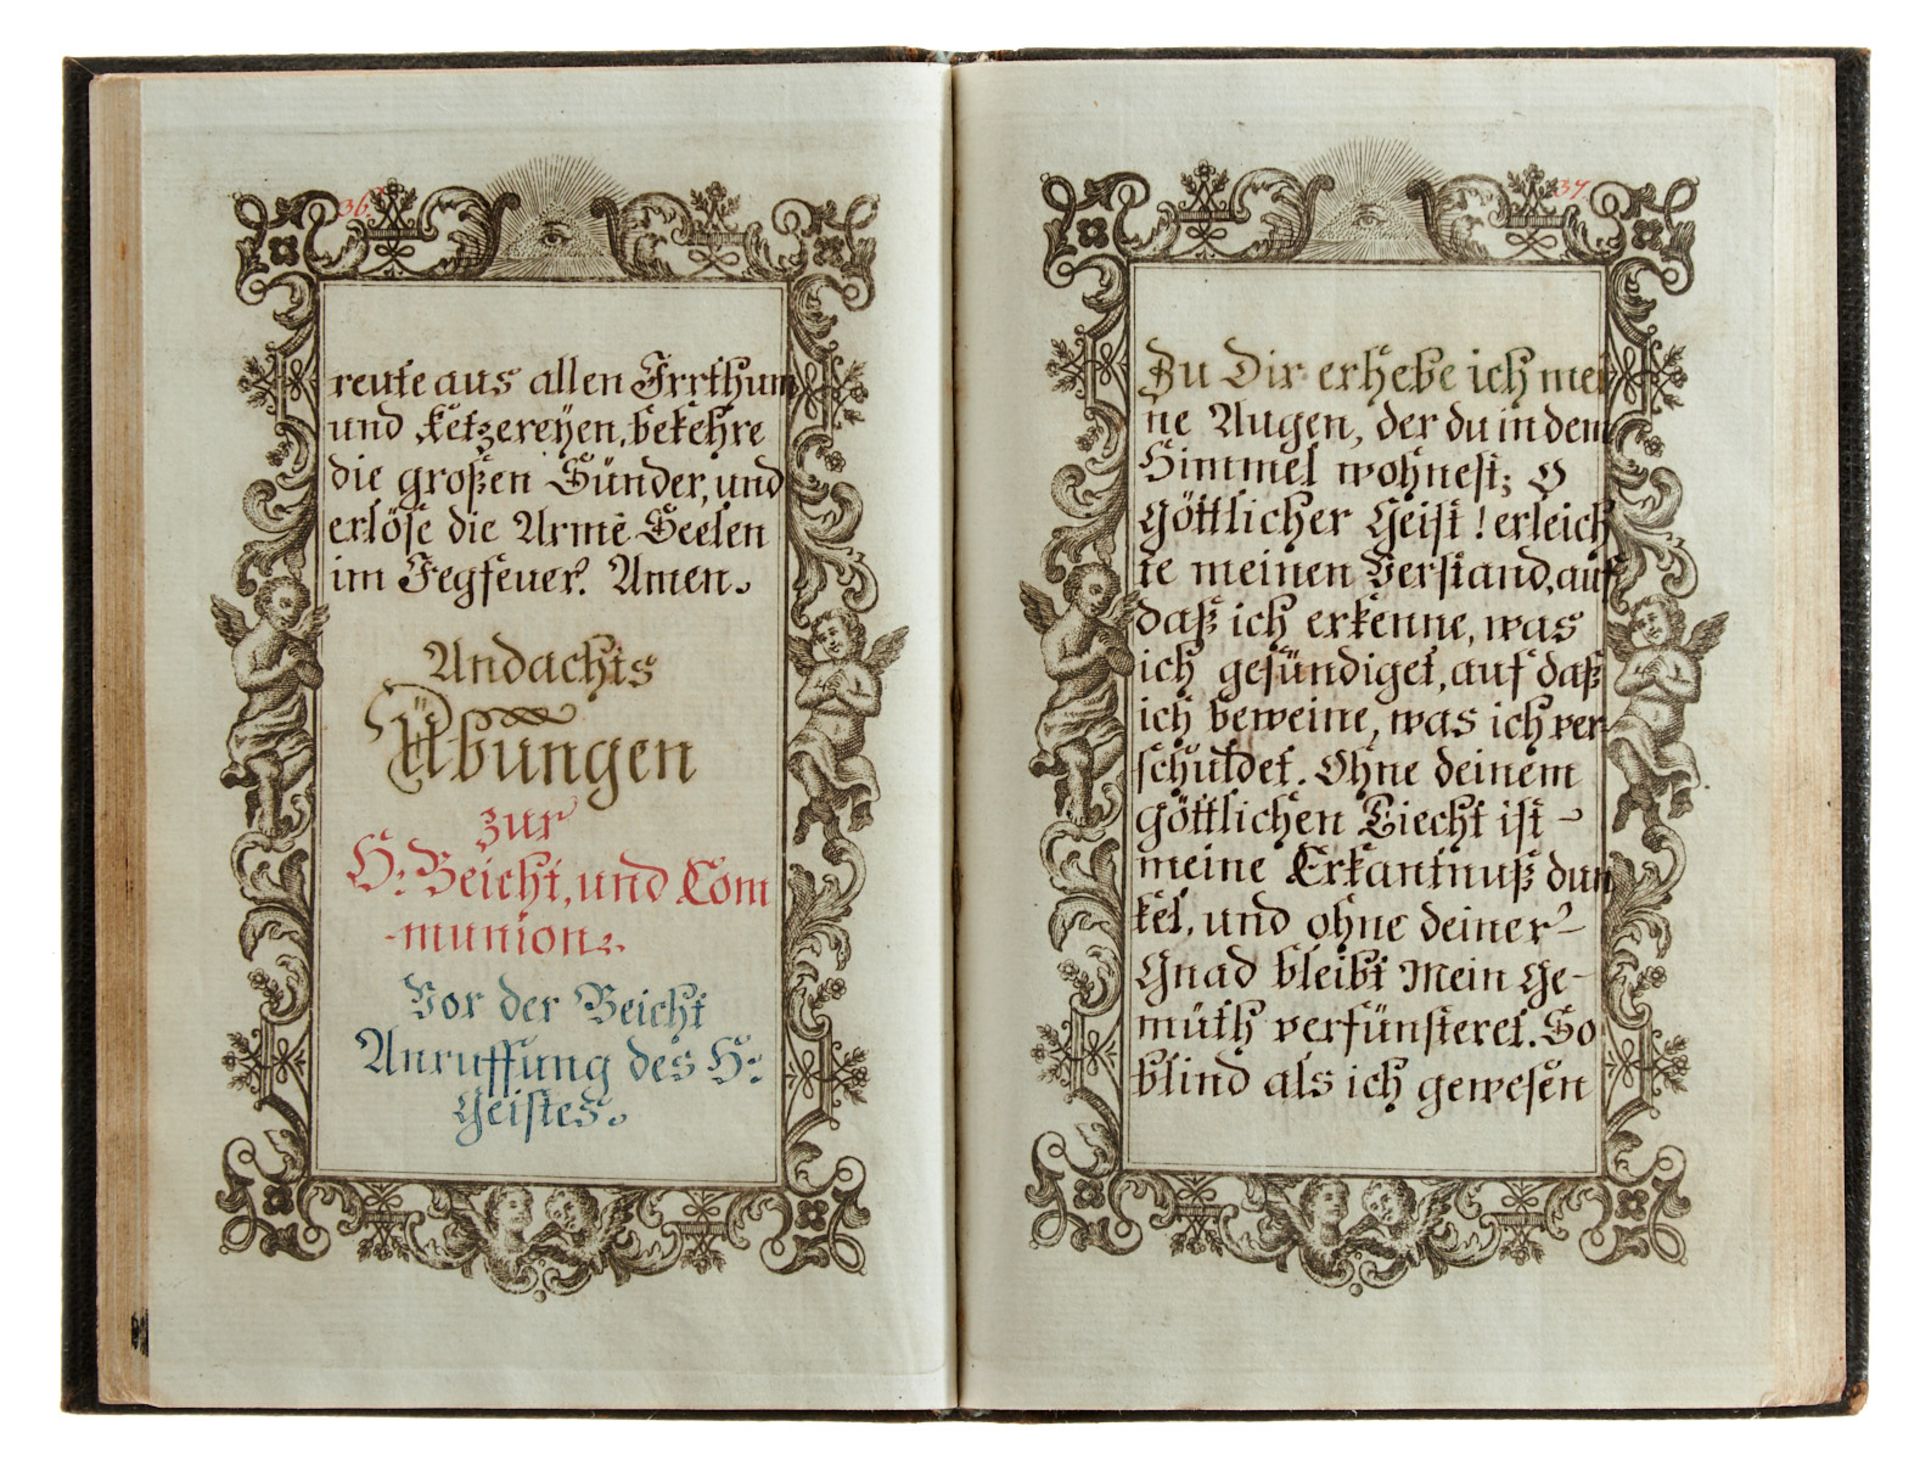 36.
reute aus allen Irrthum
und Ketzereyen, bekehre
die großen Sünder, und
erlöse die Arme Seelen
im Fegfeuer. Amen.
Andachts
Übungen
zur
H: Beicht, und Com
-munion.
Vor der Beicht
Anruffung des H:
Geistes.
37
Zu Dir erhebe ich mei
ne Augen, der du in dem
Himmel wohnest; O
Göttlicher Geist! erleich
te meinen Verstand, auf
daß ich erkenne, was
ich gesündiget, auf daß
ich beweine, was ich ver-
schuldet. Ohne deinem
Göttlichen Liecht ist -
meine Erkantnuß dun
kel, und ohne deiner -
Gnad bleibt Mein Ge-
müth verfünsteret. So
blind als ich gewesen